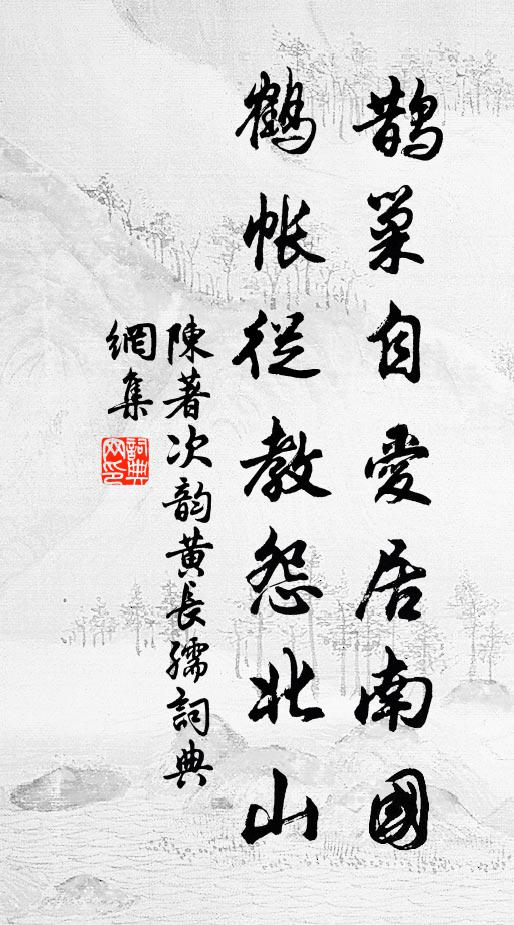 鵲巢自愛居南國
鶴帳從教怨北山
陳著次韵黄長孺詞典
網集
詞典網印